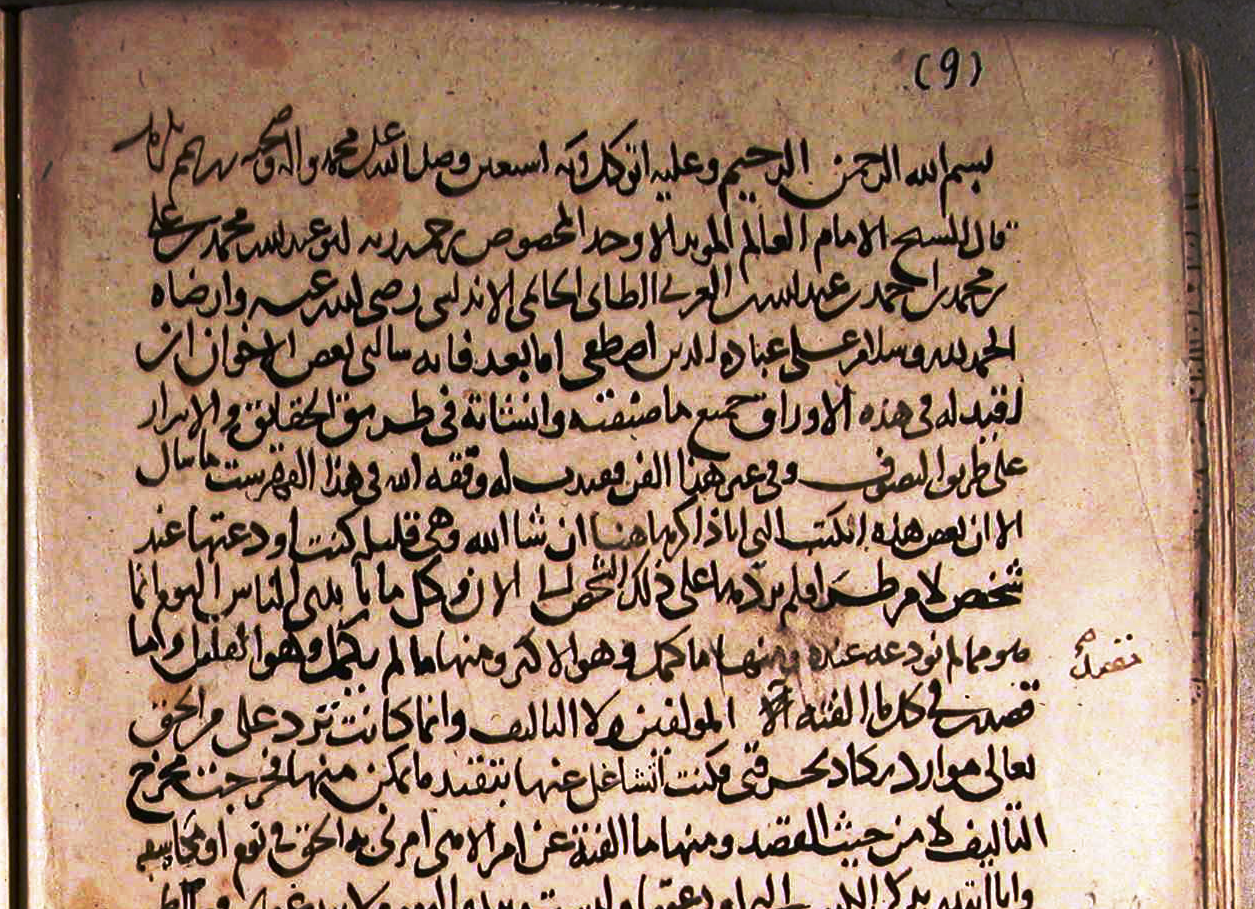 (9)
بسم الله الرحمن الرحيم وعليه اتوكل وبه استعين وصلى الله على محمد واله وصحبه
قال الشيخ الامام العالم المويد الاوحد المخصوص برحمة ربه ابو عبد الله محمد بن علي
بن محمد بن احمد بن عبد الله العربي الطاي الحاتمي الاندلسي رضي الله عنه وارضاه
الحمد لله وسلام على عباده الذين اصطفى اما بعد فانه سالني بعض الاخوان ان
اقيد له في هذه الاوراق جميع ما صنفته وانشاته في طريق الحقائق والاسرار
على طريق التصوف وفي غير هذا الفن فقيدت له وفقه الله في هذا الفهرست ما سال
الا ان بعض هذه الكتب التي انا ذاكرها هنا ان شا الله وهي قليله كنت اودعتها عند
شخص لامر طرا فلم يردها علي ذلك الشخص الى الان وكل ما بايدي الناس اليوم انما
هو مما لم نودعه عنده ومنها ما كمل وهو الاكثر ومنها ما لم يكمل وهو القليل وما
قصدت في كل ما الفته المولفين ولا التاليف وانما كانت ترد علي من الحق
تعالى موارد تكاد تحرقني فكنت اتشاغل عنها بتقييد ما يمكن منها فخرجت مخرج
التاليف لا من حيث القصد ومنها ما الفته عن امر الاهي امرني به الحق في نوم او مكاشفه